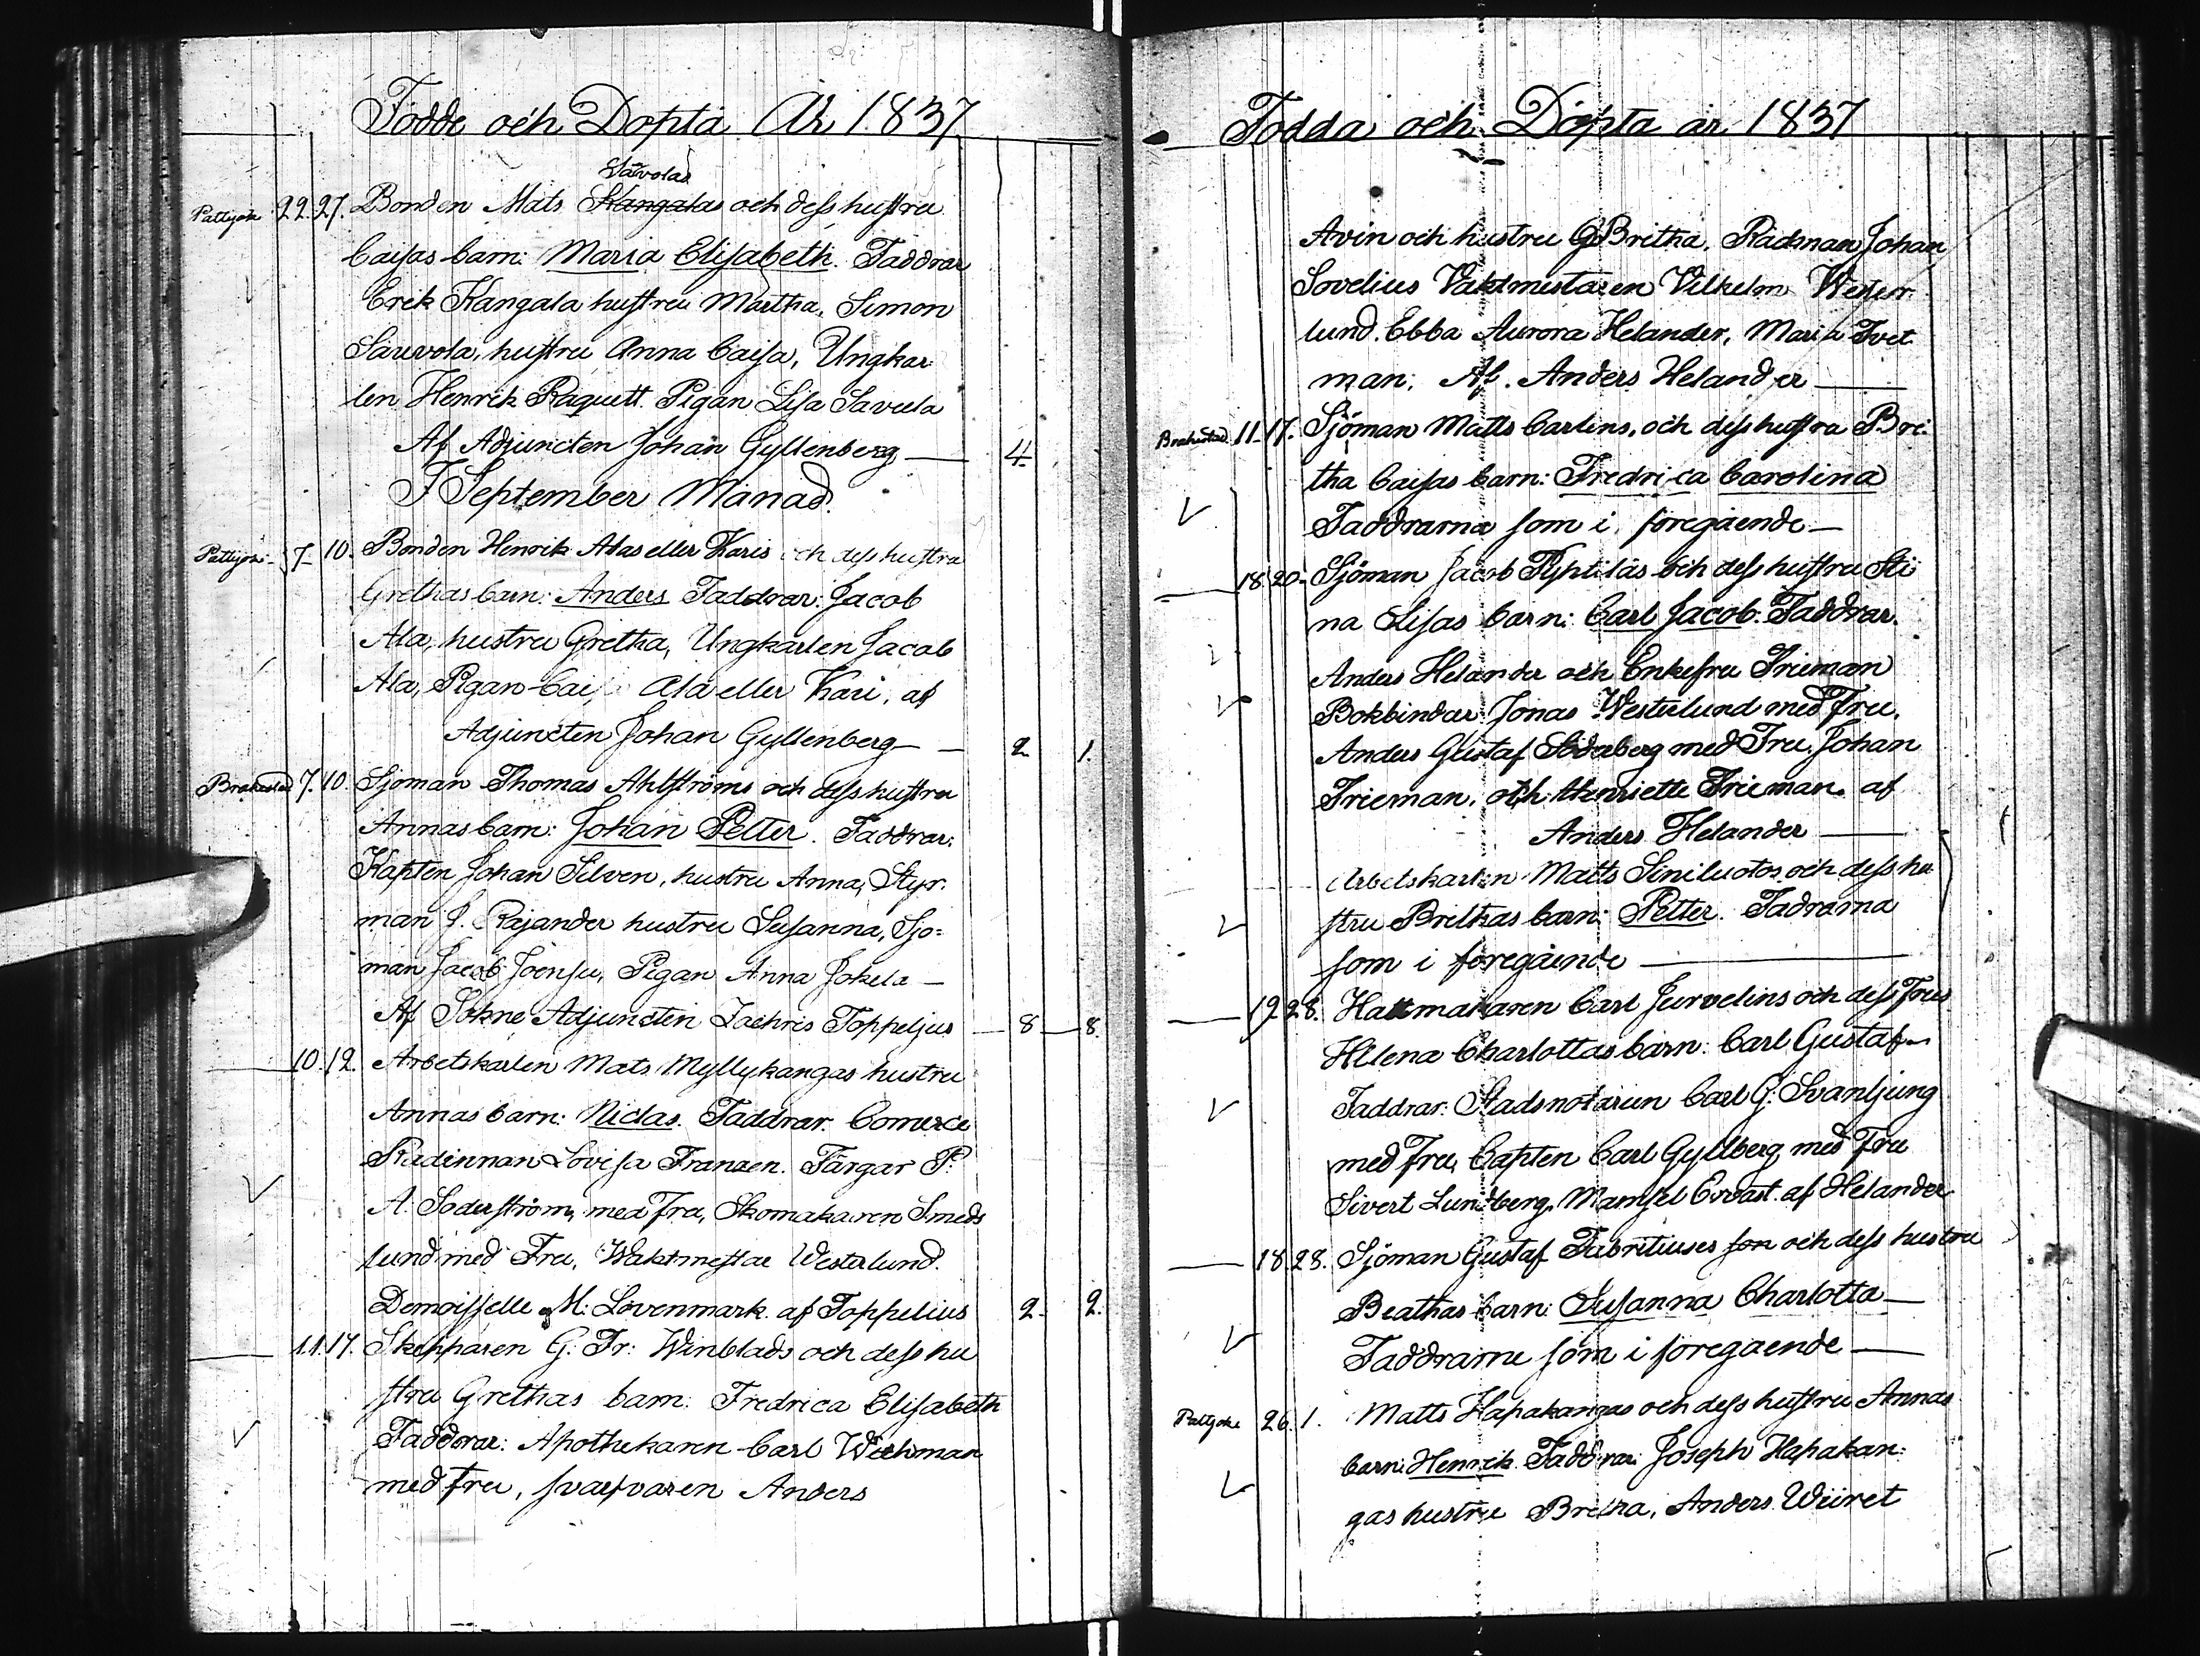 Födde och Döpta År 1837
Savolas
Pattijoki 22. 27. Bonden Mats Kangalas och dess hustru
Caisas barn: Maria Elisabeth. Faddrar
Erik Kangala hustru Martha, Simon
Sauvola, hustru Anna Caisa, Ungkar
len Henrik Raquett. Pigan Lisa Savela
Af Adjuncten Johan Gyllenberg — 4
I September Månad.
Pattijoki 7 10. Bonden Henrik Alas eller Karis och dess hustru
Grethas barn: Anders Faddrar: Jacob
Ala, hustru Gretha, Ungkarlen Jacob
Ala, Pigan Caisa Ala eller Kari, af
Adjuncten Johan Gyllenberg — 2 1.
Brahestad 7. 10. Sjöman Thomas Ahlströms och dess hustru
Annas barn: Johan Petter. Faddrar:
Kapten Johan Silven, hustru Anna, Styr.
man J. Rajander hustru Susanna, Sjö=
man Jacob Joensu, Pigan Anna Jokela —
Af Sokne Adjuncten Zachris Toppeljus — 8 — 8.
— 10. 12. Arbetskarlen Mats Myllykangas hustru
Annas barn: Niclas. Faddrar. Comerce
Rådinnan Lovisa Franzen. Färgar P.
A. Söderström, med Fru, Skomakaren Smeds
lund med Fru, Waktmestar Westerlund.
Demoisselle M: Lövenmark. af Toppelius 2. 2.
— 11. 17. Skepparen G: Fr: Winblads och dess hu
stru Grethas barn: Fredrica Elisabeth
Faddrar: Apothekaren Carl Wichman
med Fru, svarfvaren Anders
Födda och Döpta år 1837
Avin och hustru G Britha, Rådman Johan
Sovelius Vaktmestaren Vilhelm Wester
lund. Ebba Aurora Helander, Maria Tvet
man, Af. Anders Helander —
Brahestad 11. 17. Sjöman Matts Carlins, och dess hustru Bri
tha Caisas barn: Fredrica Carolina
Faddrarna som i föregående —
— 18. 20. Sjöman Jacob Pyhtiläs och dess hustru Sti
na Lisas barn: Carl Jacob. Faddrar.
Anders Helander och Enkefru Frieman
Bokbindar Jonas Westerlund med Fru.
Anders Gustaf Söderberg med Fru. Johan
Frieman, och Henriette Frieman. af
Anders Helander —
Arbetskarlen Matts Siniluotos och dess hu
stru Brithas barn: Petter. Fadrarna
som i föregående —
— 19 28. Hattmakaren Carl Jurvelins och dess Frus
Helena Charlottas barn: Carl Gustaf —
Faddrar: Stadsnotarien Carl G. Svanljung
med Fru, Capten Carl Gyllberg med Fru
Sivert Lundberg, Mamsel Evvast. af Helander
— 18. 28. Sjöman Gustaf Fabritiuses son och dess hustru
Beathas barn: Susanna Charlotta —
Faddrarne som i föregående —
Pattijoki 26. 1. Matts Hapakangas och dess hustru Annas
barn: Henrik. Faddrar: Joseph Hapakan:
gas hustru Britha, Anders Wiiret